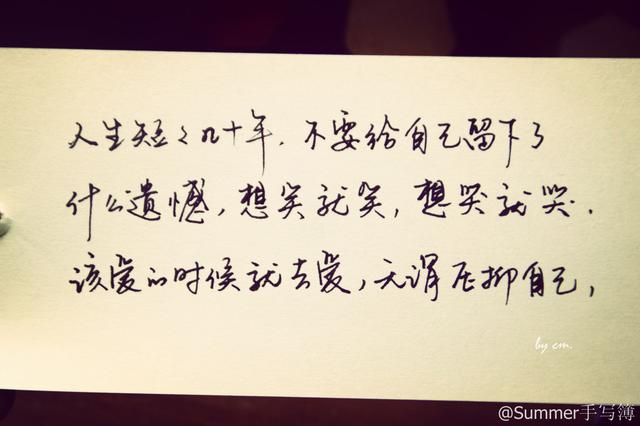 人生短々几十年.不要给自己留下了
什么遗憾,想笑就笑,想哭就哭.
该爱的时候就去爱,无谓压抑自己,
by cm.
@Summer手写簿